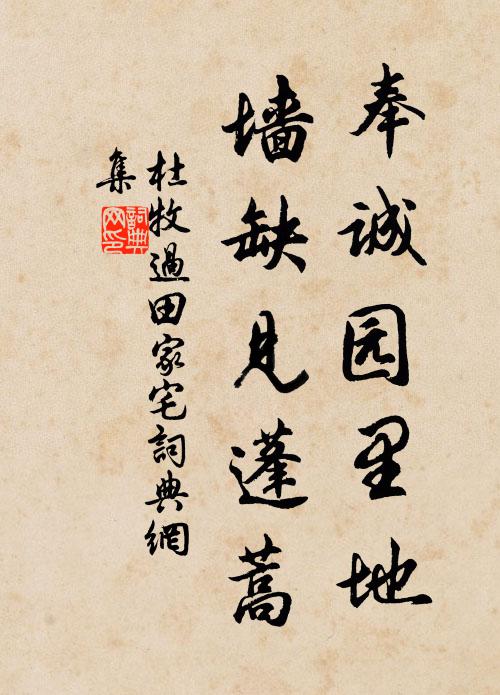 奉诚园里地
墙缺见蓬蒿
杜牧過田家宅詞典網
集
詞典
网印